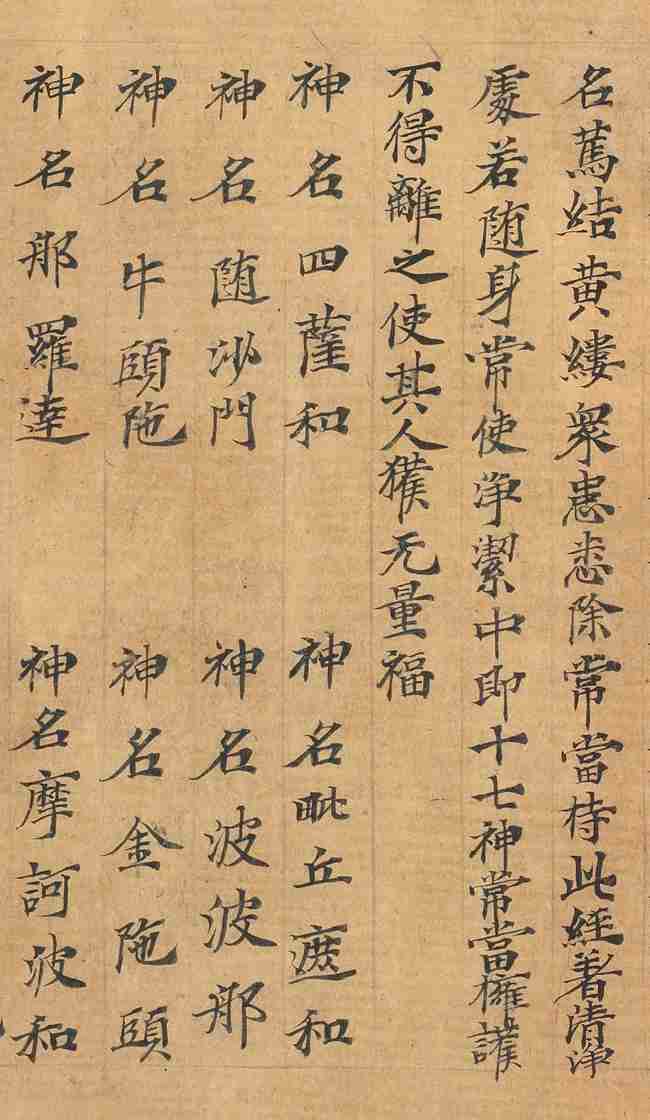 名篤結黄縷衆患悉除常當持此經著清淨
處若随身常使淨潔中即十七神常當擁護
不得離之使其人獲无量福
神名四薩和　神名毗丘遮和
神名随沙門　神名波波那
神名牛頭陁　神名金陁頭
神名那羅達　神名摩訶波和